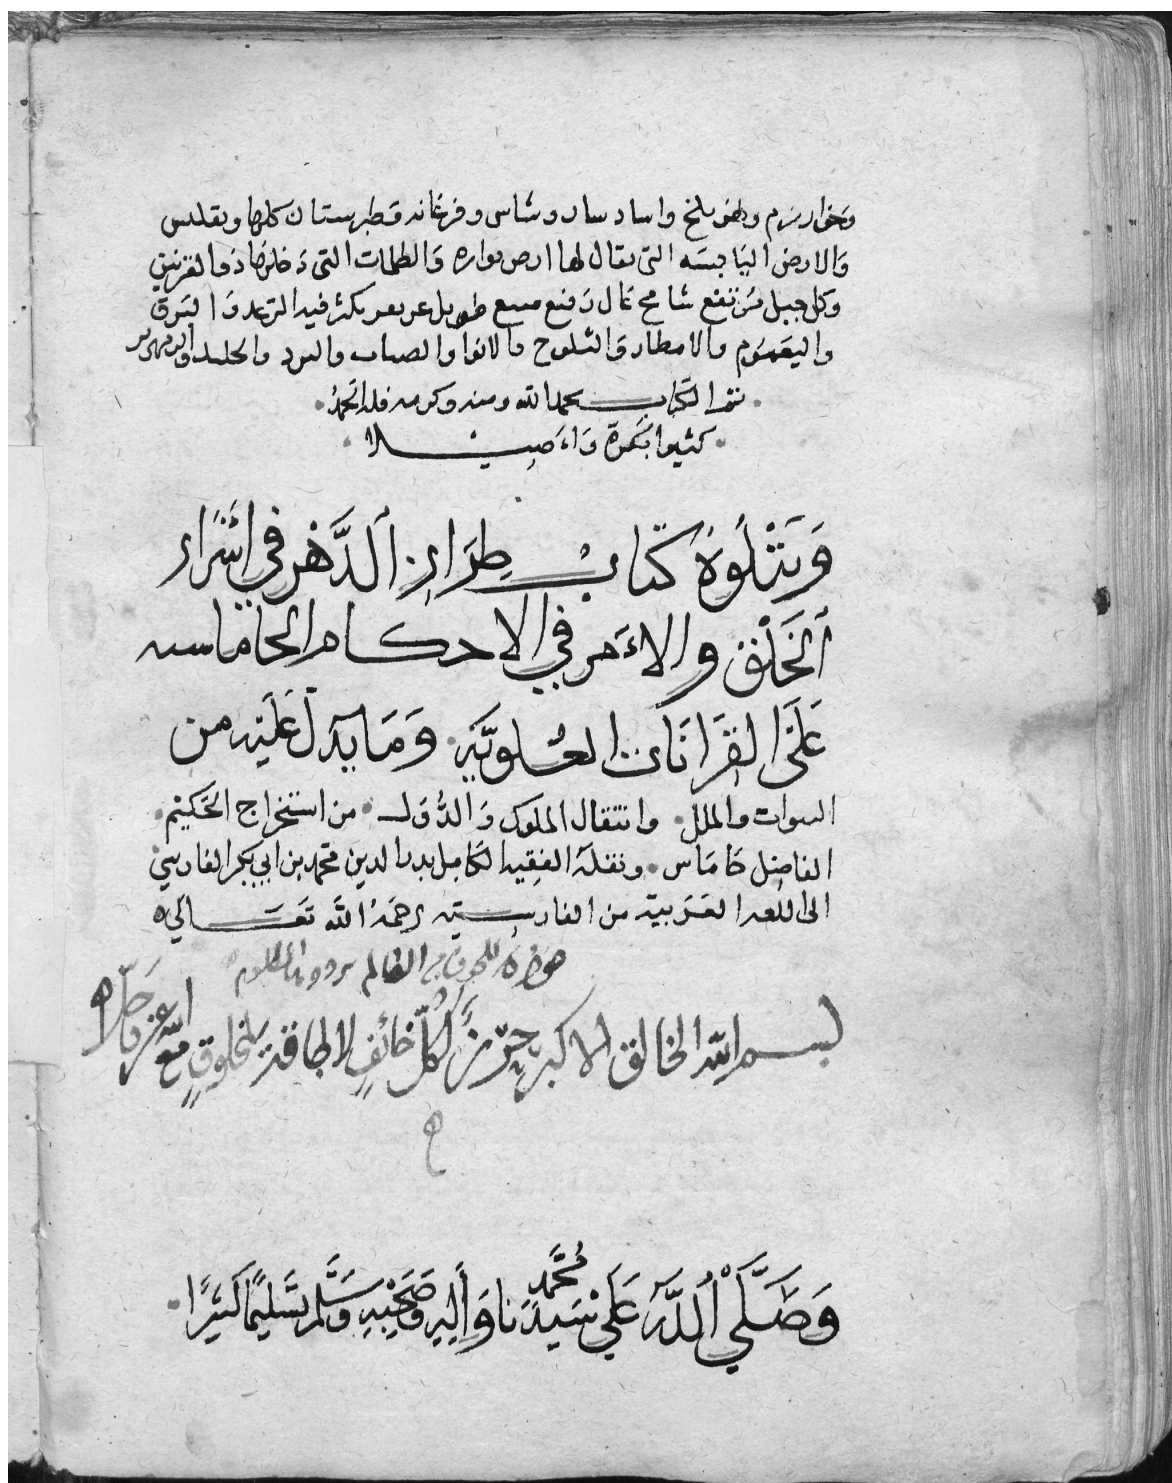 وخوارزم وبلخ وشاس وفرغانه وطبرستان كلها وتفليس
والارض اليابسه التى يقال لها ارض والظلمات التى دخلها ذو القرنين
وكل جبل مرتفع شامخ عال رفيع منيع طويل عريض يكثر فيه الرعد والبرق
والغيوم والامطار والثلوج والانوا والضباب والبرد والجليد والزمهرير
تم الكتاب بحمد الله ومنه وكرمه فله الحمد
كثيرا بكرة واءصيلا
وَيَتْلُوهُ كتَابُ طِرَازِ الدَّهْرِ فِي اَسْرَار
اَلْخَلْقِ والاءَمرِ فِي الاحكام الجاماسبيه
عَلَى القرَانَات العُلويَّه وَمَا يَدل عَلَيْه من
النبوات والملل وانتقال الملوك وَالدُّوَل من استخراج الحَكيم
الفاضل جَامَاس ونقله الفقيه الكامل بدر الدين محمد بن ابي بكر الفارسي
الى اللغه العَرَبية من الفارسيَّه رحمَهُ الله تَعَالى
للخوف من الظالم
بسم الله الخالق الاكبر حِرْزٌ لكُلِّ خائفٍ لا طاقة لمخلوقٍ مع
الله عز وجل
وَصَلَّى اَللَّهُ عَلَى سَيِّدنَا مُحَمَّد وَآلِهِ وَصَحْبِهِ وَسَلَّم تَسْليمًا كَثيرًا